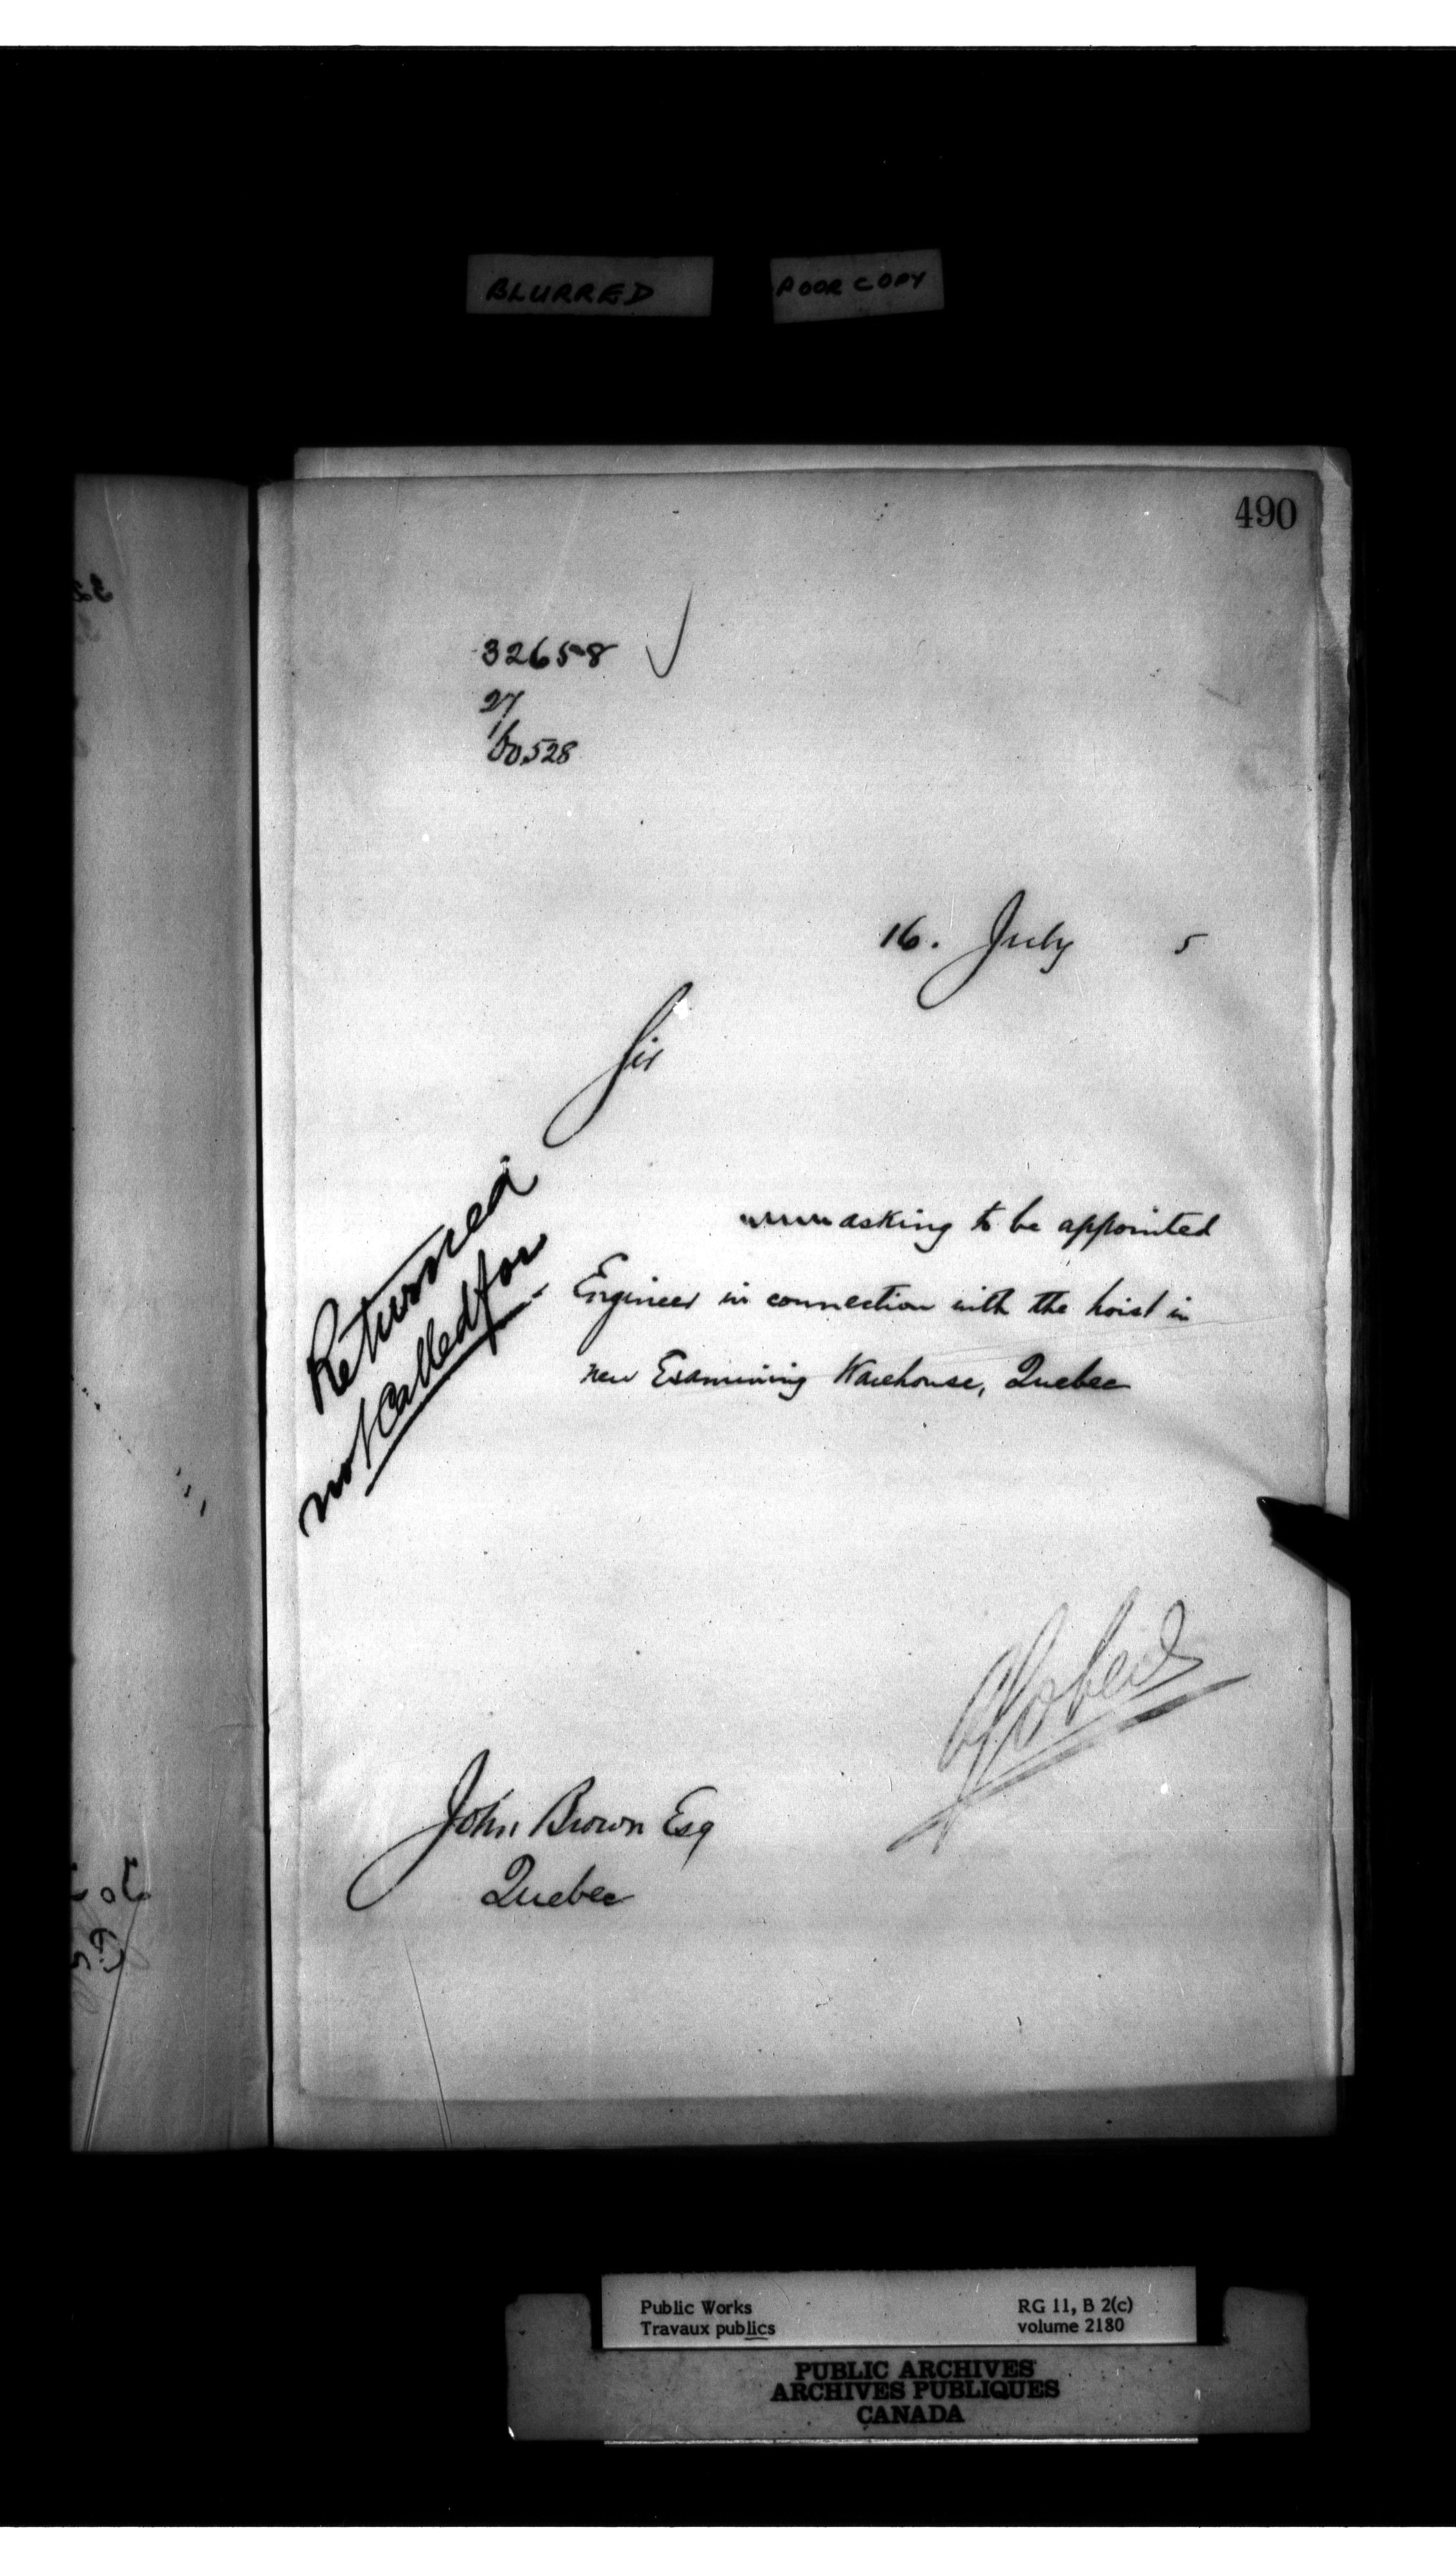 BLURRED
POOR COPY
490
32658
27
60528
16. July 5
Sir
asking to be appointed
Engineer in connection with the hoist in
new Examining Warehouse, Quebec
Returned
not Called for
John Brown Esq
Quebec
Public Works
Travaux publics
RG 11, B 2(c)
volume 2180
PUBLIC ARCHIVES
ARCHIVES PUBLIQUES
CANADA